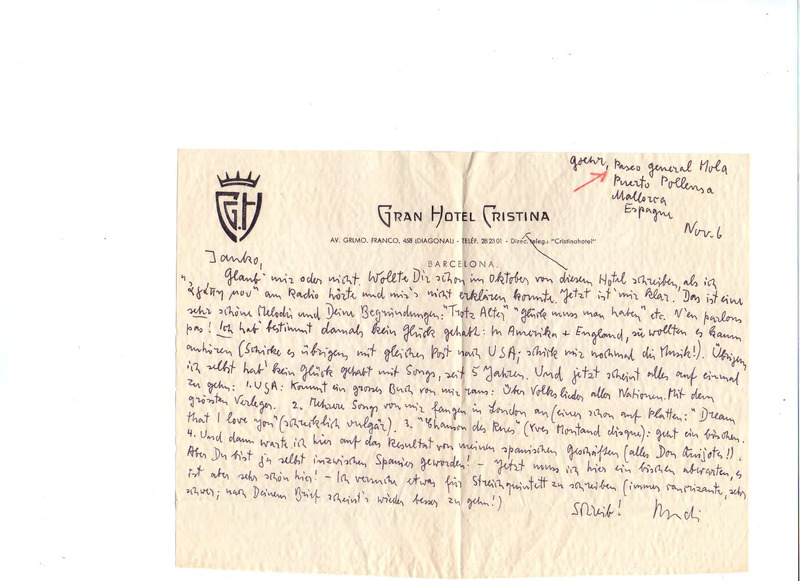 Goehr, Paseo general Mola
Puerto Pollensa
Mallorca
Espagne
Nov. 6
GH
GRAN HOTEL CRISTINA
AV. GRLMO. FRANCO, 458 (DIAGONAL) - TELÉF. 28 23 01 - Direc. teleg.: "Cristinahotel"
BARCELONA,
Janko,
Glaub' mir oder nicht. Wollte Dir schon im Oktober von diesem Hotel schreiben, als ich
"ἀγάπη μου" am Radio hörte und mir's nicht erklären konnte. Jetzt ist mir klar. Das ist eine
sehr schöne Melodie und Deine Begründungen: "Trotz Alter" "Glück muss man haben" etc. N'en parlons
pas! Ich hab' bestimmt damals kein Glück gehabt: In Amerika + England, sie wollten es kaum
anhören (Schicke es übrigens mit gleicher Post nach USA; schick mir nochmal die Musik!). Übrigens,
ich selbst hab' kein Glück gehabt mit Songs, seit 5 Jahren. Und jetzt scheint alles auf einmal
zu gehn: 1. USA: Kommt ein grosses Buch von mir raus: Über Volkslieder aller Nationen. Mit dem
grössten Verleger. 2. Mehrere Songs von mir fangen in London an (einer schon auf Platten: "Dream
that I love you" (schrecklich vulgär). 3. "Chanson des Rues" (Yves Montand disque): geht ein bischen.
4. Und dann warte ich hier auf das Resultat von meinen spanischen Geschäften (alles Don Quijote!!).
Aber Du bist ja selbst inzwischen Spanier geworden! - Jetzt muss ich hier ein bischen abwarten, es
ist aber sehr schön hier! - Ich versuche etwas für Streichquintett zu schreiben (immer sehr
schwer; nach Deinem Brief scheint's wieder besser zu gehn!)
Schreib! Rudi